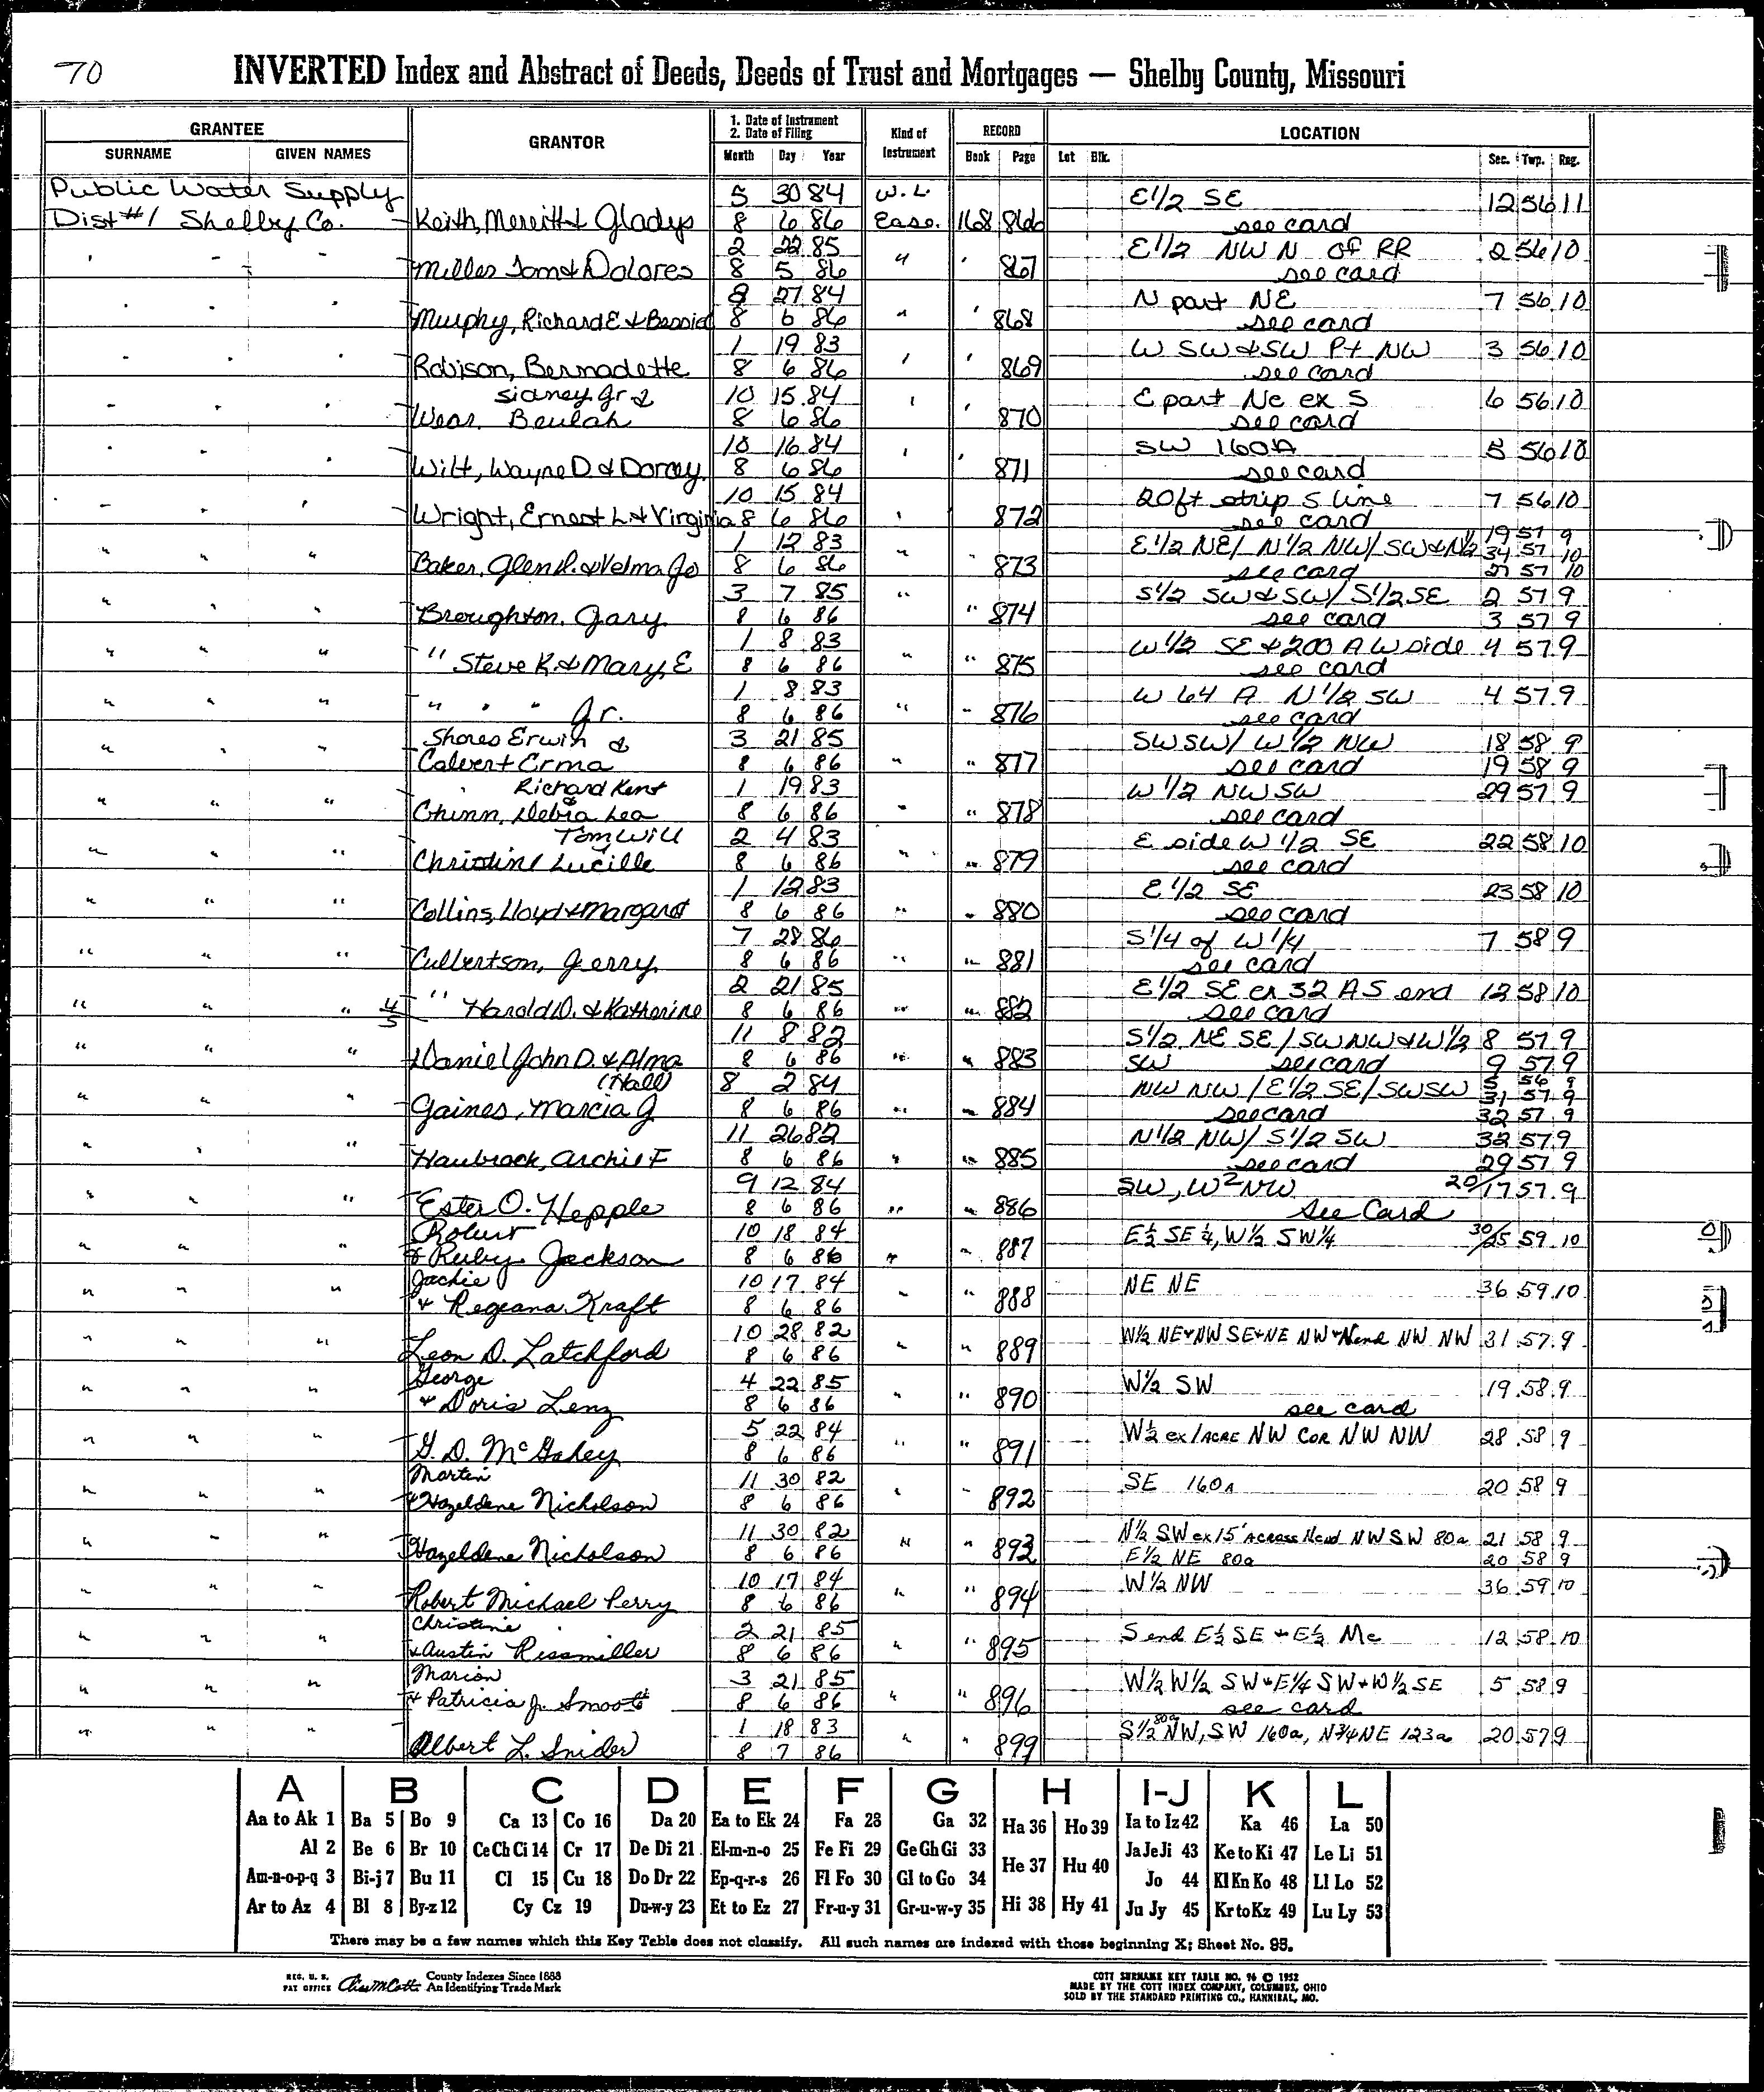 70
INVERTED Index and Abstract of Deeds, Deeds of Trust and Mortgages — Shelby County, Missouri
GRANTEE GRANTOR 1. Date of Instrument 2. Date of Filing Kind of Instrument RECORD LOCATION
SURNAME GIVEN NAMES Month Day Year Book Page Lot Blk. Sec. Twp. Rng.
Public Water Supply 5 30 84 W.L. E1/2 SE 12 56 11
Dist #1 Shelby Co. Keith, Merritt & Gladys 8 6 86 Ease. 168 866 see card
2 22 85 E1/2 NW N of RR 2 56 10
Miller Tom & Dolores 8 5 86 " ' 867 see card
8 27 84 N part NE 7 56 10
Murphy, Richard E & Bessie 8 6 86 " ' 868 see card
1 19 83 W SW & SW Pt NW 3 56 10
Robison, Bernadette 8 6 86 ' ' 869 see card
Sidney Jr & 10 15 84 E part Ne ex S 6 56 10
Wear, Beulah 8 6 86 ' ' 870 see card
10 16 84 SW 160A 5 56 10
Wilt, Wayne D & Dorcey 8 6 86 ' ' 871 see card
10 15 84 20ft strip S line 7 56 10
Wright, Ernest L & Virginia 8 6 86 ' 872 see card
1 12 83 E1/2 NE/ N1/2 NW/ SW & N1/2 19 57 9
34 57 10
Baker, Glen D. & Velma Jo 8 6 86 " " 873 see card 27 57 10
3 7 85 S1/2 SW & SW/ S1/2 SE 2 57 9
Broughton, Gary 8 6 86 " " 874 see card 3 57 9
1 8 83 W1/2 SE & 200 A W side 4 57 9
" Steve R & Mary E 8 6 86 " " 875 see card
1 8 83 W 64 A N1/2 SW 4 57 9
" " " Jr. 8 6 86 " " 876 see card
Shores Erwin & 3 21 85 SWSW/ W1/2 NW 18 58 9
Calvert Erma 8 6 86 " " 877 see card 19 58 9
Richard Kent 1 19 83 W1/2 NWSW 29 57 9
Chinn, Debra Lea 8 6 86 " " 878 see card
Tom Will 2 4 83 E side W1/2 SE 22 58 10
Christine Lucille 8 6 86 " " 879 see card
1 12 83 E1/2 SE 23 58 10
Collins, Lloyd & Margaret 8 6 86 " " 880 see card
7 28 86 S1/4 of W1/4 7 58 9
Culbertson, Jerry 8 6 86 " " 881 see card
2 21 85 E1/2 SE ex 32 A S end 12 58 10
4/5 " Harold D. & Katherine 8 6 86 " " 882 see card
11 8 82 S1/2 NE SE / SWNW & W1/2 8 57 9
Daniel John D. & Alma 8 6 86 " " 883 SW see card 9 57 9
(Hall) 8 2 84 NW NW / E1/2 SE / SWSW 5 56 9
31 57 9
Gaines, Marcia G 8 6 86 " " 884 see card 32 57 9
11 26 82 N1/2 NW/ S1/2 SW 32 57 9
Haubrock, Archie F 8 6 86 " " 885 see card 29 57 9
9 12 84 SW, W2 NW 20/17 57 9
Ester O. Hepple 8 6 86 " " 886 See Card
Robert 10 18 84 E½ SE ¼, W½ SW¼ 30/25 59 10
& Ruby Jackson 8 6 86 " " 887
Jackie 10 17 84 NE NE 36 59 10
& Regeana Kraft 8 6 86 " " 888
10 28 82 W½ NE+NW SE+NE NW+Nend NW NW 31 57 9
Leon D. Latchford 8 6 86 " " 889
George 4 22 85 W½ SW 19 58 9
& Doris Lenz 8 6 86 " " 890 see card
5 22 84 W½ ex 1 ACRE NW COR NW NW 28 58 9
G. D. McGahey 8 6 86 " " 891
Martin 11 30 82 SE 160A 20 58 9
& Hazeldene Nicholson 8 6 86 " " 892
11 30 82 N½ SW ex 15' Across Nend NWSW 80a 21 58 9
Hazeldene Nicholson 8 6 86 " " 893 E½ NE 80a 20 58 9
10 17 84 W½ NW 36 59 10
Robert Michael Perry 8 6 86 " " 894
Christine 2 21 85 S end E½ SE + E½ Mc 12 58 10
& Austin Rissmiller 8 6 86 " " 895
Marion 3 21 85 W½ W½ SW + E¼ SW + W½ SE 5 58 9
& Patricia J. Smoot 8 6 86 " " 896 see card
1 18 83 S½ 80a NW, SW 160a, N¾ NE 123a 20 57 9
Albert L. Snider 8 7 86 " " 899
A B C D E F G H I-J K L
Aa to Ak 1 Ba 5 Bo 9 Ca 13 Co 16 Da 20 Ea to Ek 24 Fa 28 Ga 32 Ha 36 Ho 39 Ia to Iz 42 Ka 46 La 50
Al 2 Be 6 Br 10 Ce Ch Ci 14 Cr 17 De Di 21 El-m-n-o 25 Fe Fi 29 Ge Gh Gi 33 He 37 Hu 40 Ja Je Ji 43 Ke to Ki 47 Le Li 51
Am-n-o-p-q 3 Bi-j 7 Bu 11 Cl 15 Cu 18 Do Dr 22 Ep-q-r-s 26 Fl Fo 30 Gl to Go 34 Jo 44 Kl Kn Ko 48 Ll Lo 52
Ar to Az 4 Bl 8 By-z 12 Cy Cz 19 Du-w-y 23 Et to Ez 27 Fr-u-y 31 Gr-u-w-y 35 Hi 38 Hy 41 Ju Jy 45 Kr to Kz 49 Lu Ly 53
There may be a few names which this Key Table does not classify. All such names are indexed with those beginning X; Sheet No. 93.
REG. U. S. PAT OFFICE County Indexes Since 1888 An Identifying Trade Mark
COTT SURNAME KEY TABLE NO. 96 © 1952
MADE BY THE COTT INDEX COMPANY, COLUMBUS, OHIO
SOLD BY THE STANDARD PRINTING CO., HANNIBAL, MO.